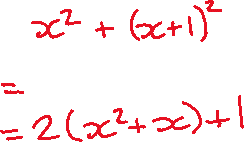 x² + (x+1)²
=
= 2(x²+x)+1